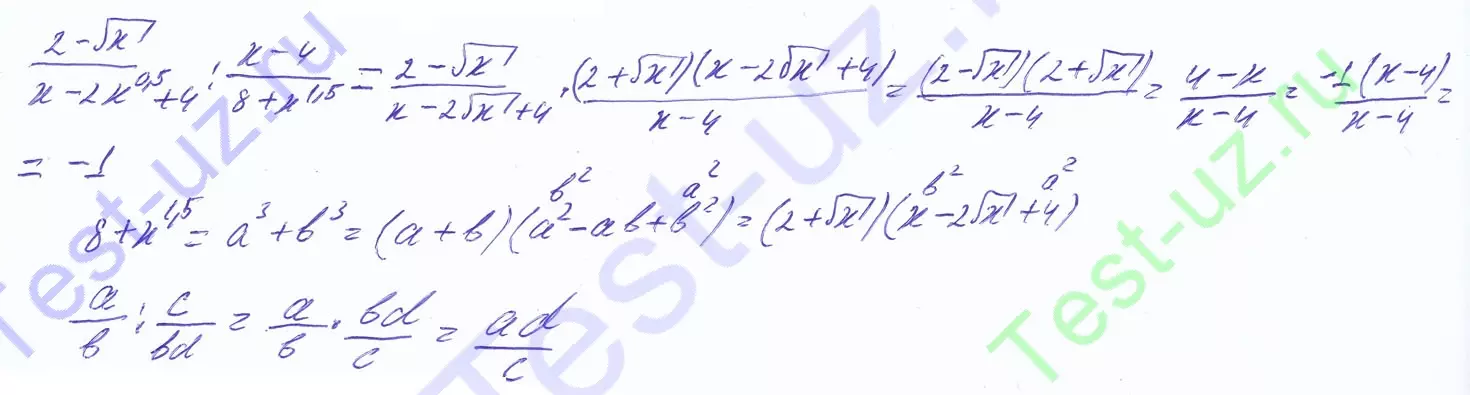 (2-√x)/(x-2x^0,5+4) : (x-4)/(8+x^1,5) = (2-√x)/(x-2√x+4) · (2+√x)(x-2√x+4)/(x-4) = (2-√x)(2+√x)/(x-4) = (4-x)/(x-4) = -1(x-4)/(x-4) =
= -1
b² a²
8+x^1,5 = a³+b³ = (a+b)(a²-ab+b²) = (2+√x)(x-2√x+4) b² a²
a/b : c/bd = a/b · bd/c = ad/c
Test-uz.ru
Test-uz.ru
Test-uz.ru